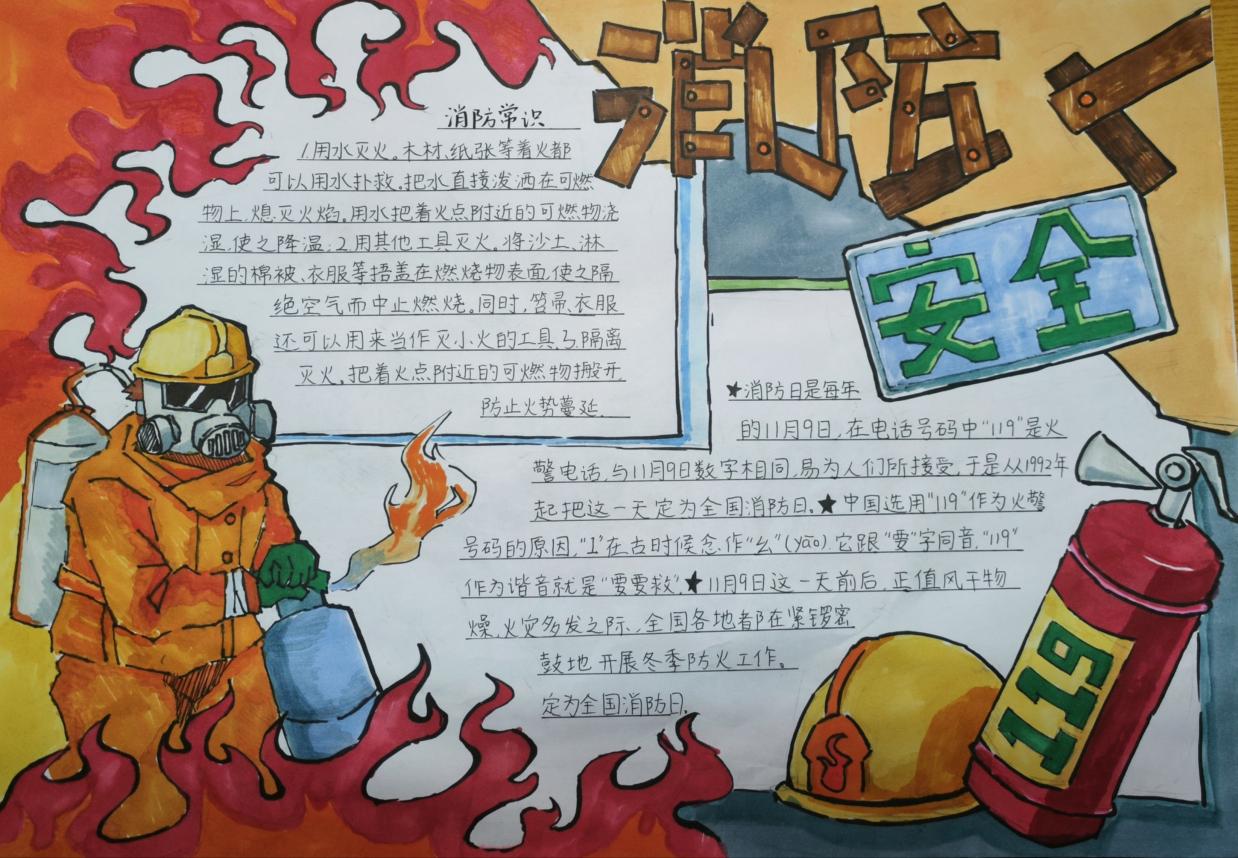 消防
安全
消防常识
1用水灭火。木材、纸张等着火都
可以用水扑救。把水直接泼洒在可燃
物上,熄灭火焰。用水把着火点附近的可燃物浇
湿,使之降温;2.用其他工具灭火。将沙土、淋
湿的棉被、衣服等捂盖在燃烧物表面,使之隔
绝空气而中止燃烧。同时,笤帚、衣服
还可以用来当作灭小火的工具.3.隔离
灭火。把着火点附近的可燃物搬开
防止火势蔓延.
★消防日是每年
的11月9日,在电话号码中“119”是火
警电话,与11月9日数字相同,易为人们所接受,于是从1992年
起把这一天定为全国消防日.★中国选用“119”作为火警
号码的原因,“1”在古时候念作“幺”(yāo).它跟“要”字同音,“119”
作为谐音就是“要要救”.★11月9日这一天前后,正值风干物
燥,火灾多发之际,全国各地都在紧锣密
鼓地开展冬季防火工作。
定为全国消防日.
119